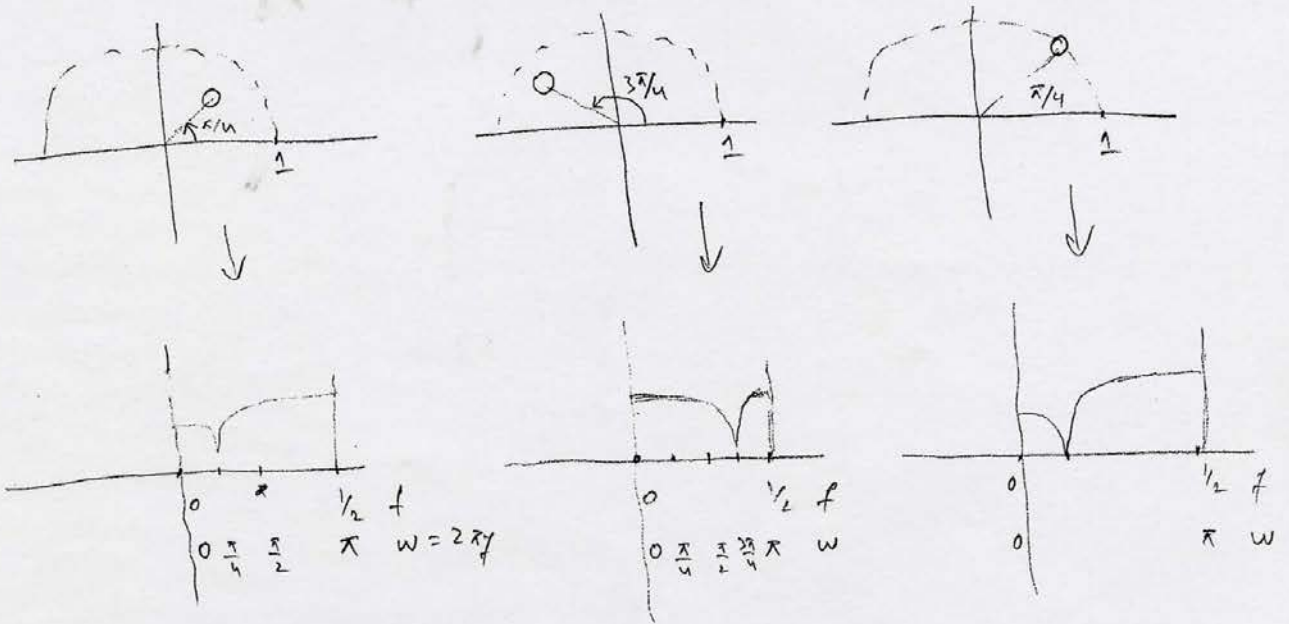 π/4
1
3π/4
1
π/4
1
0 1/2 f
0 π/4 π/2 π w = 2πf
0 1/2 f
0 π/4 π/2 3π/4 π w
0 1/2 f
0 π w